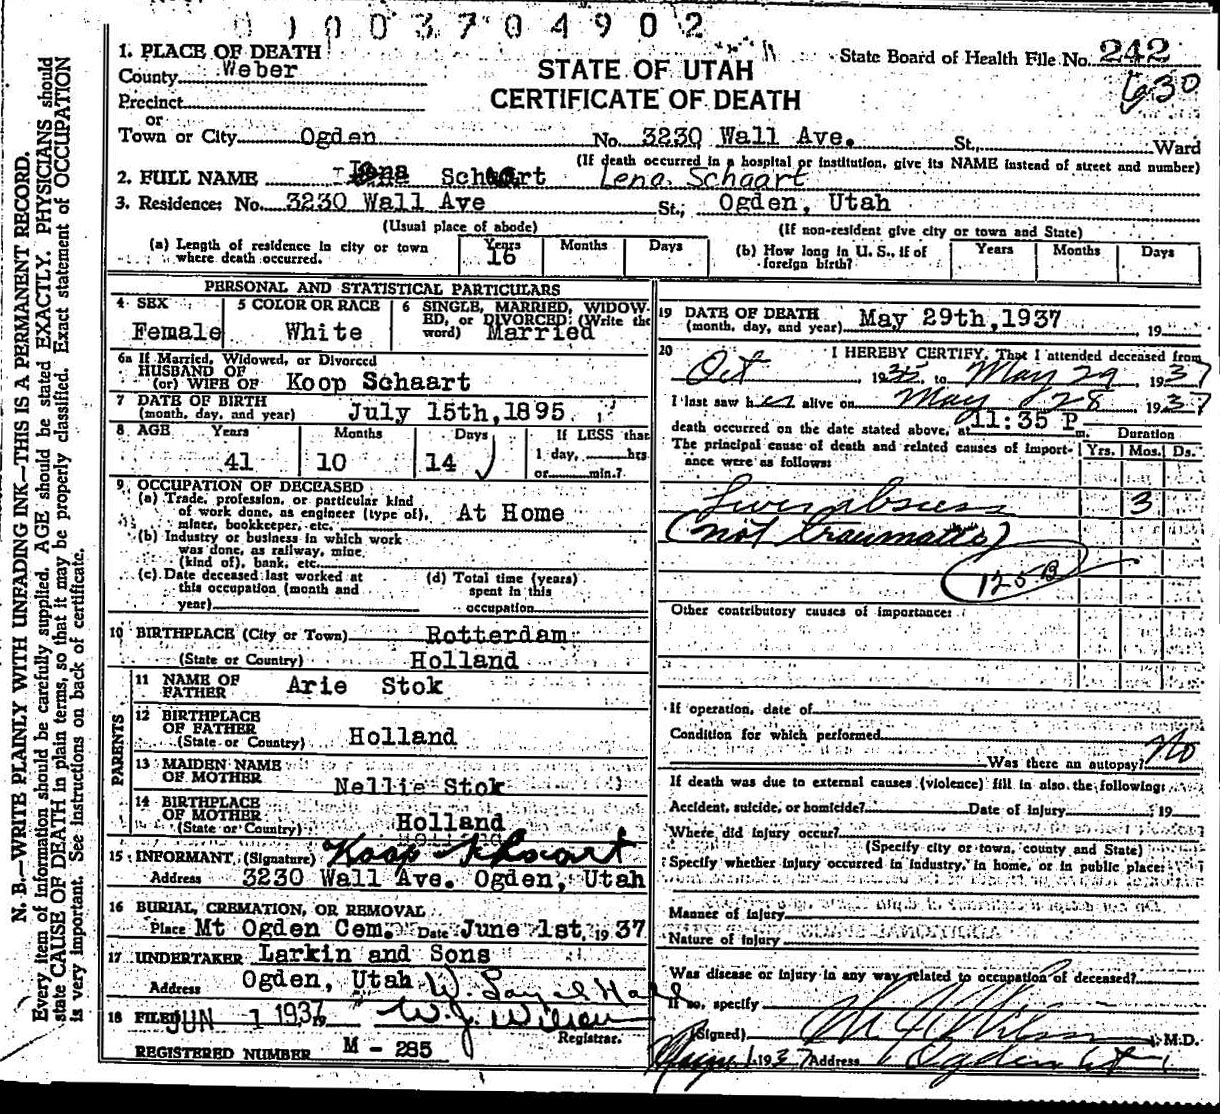 0 1 0 0 3 7 0 4 9 0 2
1. PLACE OF DEATH
County Weber
Precinct
or
Town or City Ogden
STATE OF UTAH
CERTIFICATE OF DEATH
State Board of Health File No. 242
630
No. 3230 Wall Ave. St., Ward
(If death occurred in a hospital or institution, give its NAME instead of street and number)
2. FULL NAME Lena Schaart Lena Schaart
3. Residence: No. 3230 Wall Ave St., Ogden, Utah
(Usual place of abode) (If non-resident give city or town and State)
(a) Length of residence in city or town where death occurred. Years 16 Months Days
(b) How long in U. S., if of foreign birth? Years Months Days
PERSONAL AND STATISTICAL PARTICULARS
4 SEX Female
5 COLOR OR RACE White
6 SINGLE, MARRIED, WIDOWED, or DIVORCED: (Write the word) Married
6a If Married, Widowed, or Divorced
HUSBAND OF
(or) WIFE OF Koop Schaart
7 DATE OF BIRTH
(month, day, and year) July 15th, 1895
8 AGE Years Months Days If LESS than
41 10 14 1 day, hrs
or min.?
9 OCCUPATION OF DECEASED
(a) Trade, profession, or particular kind
of work done, as engineer (type of), At Home
miner, bookkeeper, etc.
(b) Industry or business in which work
was done, as railway, mine
(kind of), bank, etc.
(c) Date deceased last worked at
this occupation (month and
year)
(d) Total time (years)
spent in this
occupation
10 BIRTHPLACE (City or Town) Rotterdam
(State or Country) Holland
PARENTS
11 NAME OF
FATHER Arie Stok
12 BIRTHPLACE
OF FATHER
(State or Country) Holland
13 MAIDEN NAME
OF MOTHER Nellie Stok
14 BIRTHPLACE
OF MOTHER
(State or Country) Holland
15 INFORMANT (Signature) Koop Schaart
Address 3230 Wall Ave. Ogden, Utah
16 BURIAL, CREMATION, OR REMOVAL
Place Mt Ogden Cem. Date June 1st, 1937
17 UNDERTAKER Larkin and Sons
Address Ogden, Utah
18 FILED JUN 1 1937 W. J. Wilson
Registrar.
REGISTERED NUMBER M - 285
19 DATE OF DEATH
(month, day, and year) May 29th, 1937 19
20 I HEREBY CERTIFY, That I attended deceased from
Oct, 1935 to May 29, 1937
I last saw her alive on May 28 1937
death occurred on the date stated above, at 11:35 P m. Duration
The principal cause of death and related causes of importance were as follows: Yrs. Mos. Ds.
Liver abscess 3
(not traumatic)
125B
Other contributory causes of importance:
If operation, date of
Condition for which performed
Was there an autopsy? No
If death was due to external causes (violence) fill in also the following:
Accident, suicide, or homicide? Date of injury 19
Where did injury occur?
(Specify city or town, county and State)
Specify whether injury occurred in industry, in home, or in public place:
Manner of injury
Nature of injury
Was disease or injury in any way related to occupation of deceased?
If so, specify
(Signed) M.D.
June 1 1937 Address Ogden Ut
N. B.—WRITE PLAINLY WITH UNFADING INK—THIS IS A PERMANENT RECORD.
Every item of information should be carefully supplied. AGE should be stated EXACTLY. PHYSICIANS should
state CAUSE OF DEATH in plain terms, so that it may be properly classified. Exact statement of OCCUPATION
is very important. See instructions on back of certificate.